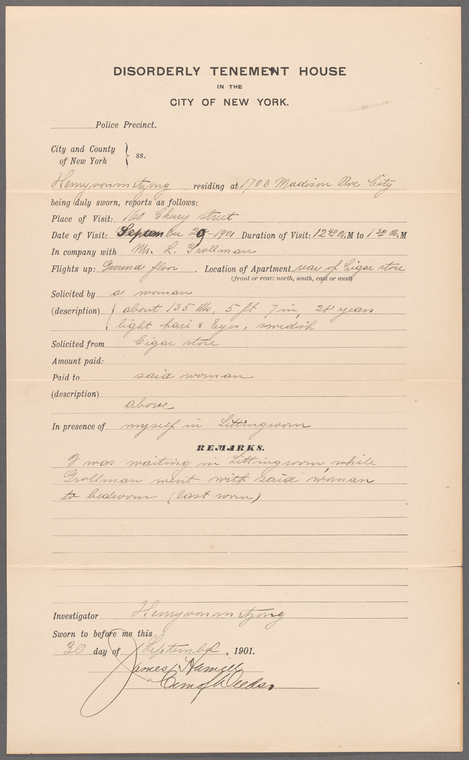 DISORDERLY TENEMENT HOUSE
IN THE
CITY OF NEW YORK.
Police Precinct.
City and County
of New York } ss.
residing at 1703 Madison Ave City
being duly sworn, reports as follows:
Place of Visit: street
Date of Visit: September 29-1901. Duration of Visit: 12 M to 1 30 A. M
In company with Mr. L. Grollman
Flights up: Ground floor. Location of Apartment, rear of Cigar store
(front or rear: north, south, east or west)
Solicited by a woman
(description) { about 135 lbs, 5 ft 7 in, 28 years
light hair & Eyes, swedish
Solicited from Cigar store
Amount paid:
Paid to said woman
(description)
above
In presence of myself in Sittingroom
REMARKS.
I was waiting in Sittingroom, while
Grollman went with said woman
to bedroom (last room)
Investigator
Sworn to before me this
30 day of September, 1901.
James
Com of Deeds.